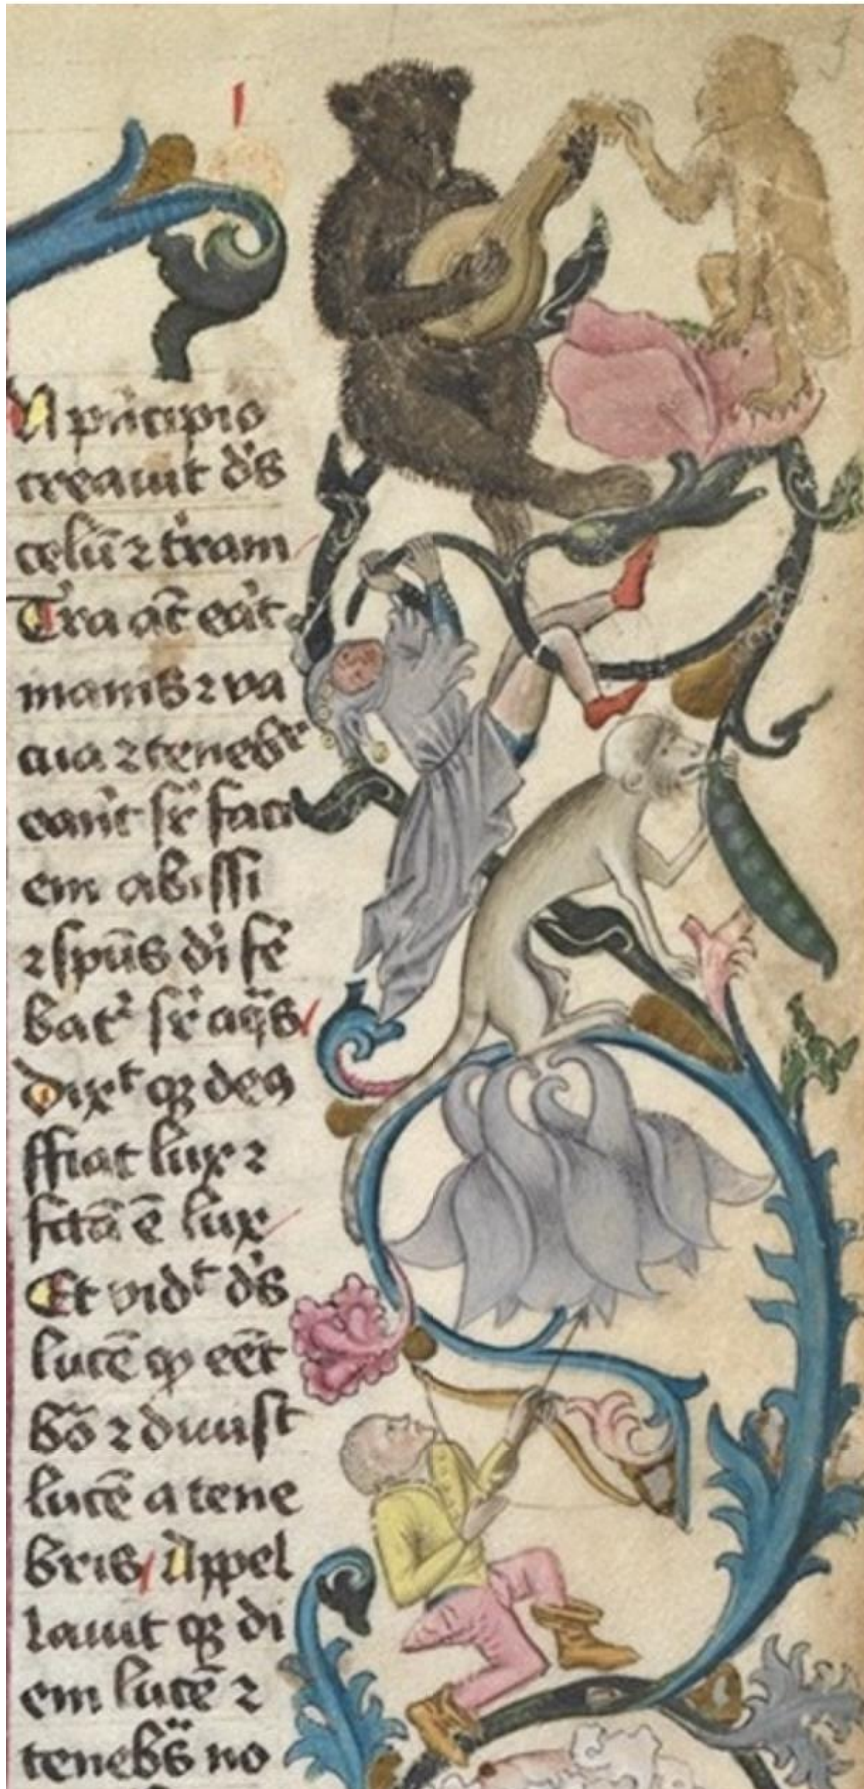 N principio
creauit ds̄
celū ⁊ t̉ram
T̉ra aūt eāt
inanis ⁊ va
cua ⁊ tenebͤr
erāt sr̄ faci
em abissi
⁊ spūs di fe
bat᷒ sr̄ aq̄s
dixͭ qꝫ deꝯ
ffiat lux ⁊
fctā ē lux
Et vidͭ ds̄
lucē ꝙ eēt
bō ⁊ diuisit
lucē a tene
bris Appel
lauit qꝫ di
em lucē ⁊
tenebˢ no